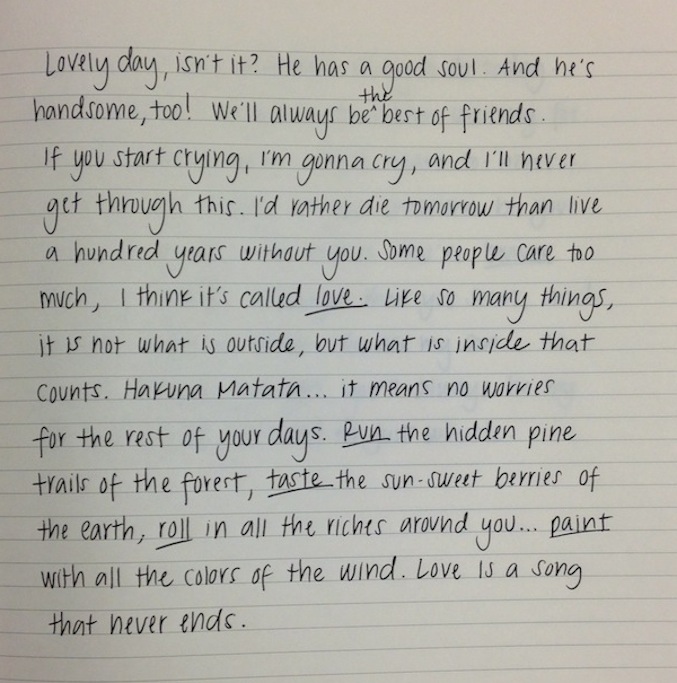 Lovely day, isn't it? He has a good soul. And he's
handsome, too! We'll always be ^the best of friends.
If you start crying, I'm gonna cry, and I'll never
get through this. I'd rather die tomorrow than live
a hundred years without you. Some people care too
much, I think it's called love. Like so many things,
it is not what is outside, but what is inside that
counts. Hakuna Matata... it means no worries
for the rest of your days. Run the hidden pine
trails of the forest, taste the sun-sweet berries of
the earth, roll in all the riches around you... paint
with all the colors of the wind. Love is a song
that never ends.